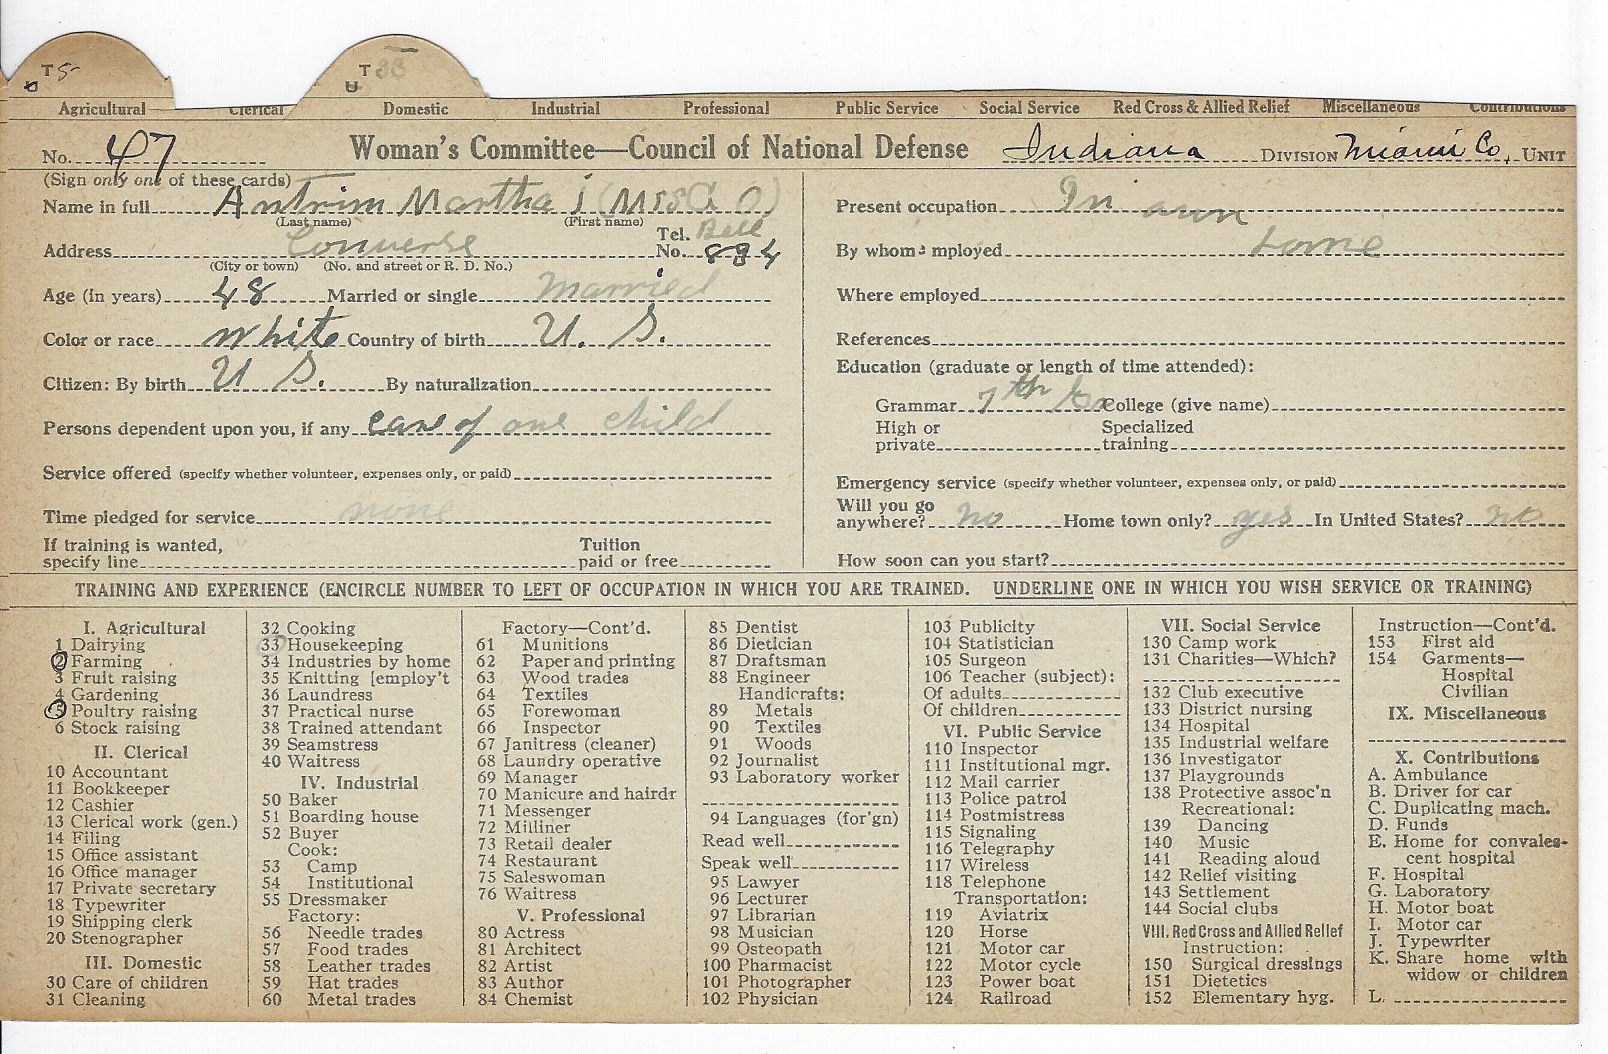 T 5
U
T 33
U
Agricultural Clerical Domestic Industrial Professional Public Service Social Service Red Cross & Allied Relief Miscellaneous Contributions
No. 47 Woman's Committee—Council of National Defense Indiana DIVISION Miami Co, UNIT
(Sign only one of these cards)
Name in full Antrim Martha
(Last name) (First name)
Address Converse Tel. No. Bell 834
(City or town) (No. and street or R. D. No.)
Age (in years) 48 Married or single Married
Color or race White Country of birth U. S.
Citizen: By birth U S. By naturalization
Persons dependent upon you, if any care of one child
Service offered (specify whether volunteer, expenses only, or paid)
Time pledged for service none
If training is wanted, specify line Tuition paid or free
Present occupation In own
By whom employed home
Where employed
References
Education (graduate or length of time attended):
Grammar 7th Gr College (give name)
High or private Specialized training
Emergency service (specify whether volunteer, expenses only, or paid)
Will you go anywhere? no Home town only? yes In United States? no
How soon can you start?
TRAINING AND EXPERIENCE (ENCIRCLE NUMBER TO LEFT OF OCCUPATION IN WHICH YOU ARE TRAINED. UNDERLINE ONE IN WHICH YOU WISH SERVICE OR TRAINING)
I. Agricultural
1 Dairying
2 Farming
3 Fruit raising
4 Gardening
5 Poultry raising
6 Stock raising
II. Clerical
10 Accountant
11 Bookkeeper
12 Cashier
13 Clerical work (gen.)
14 Filing
15 Office assistant
16 Office manager
17 Private secretary
18 Typewriter
19 Shipping clerk
20 Stenographer
III. Domestic
30 Care of children
31 Cleaning
32 Cooking
33 Housekeeping
34 Industries by home
35 Knitting [employ't
36 Laundress
37 Practical nurse
38 Trained attendant
39 Seamstress
40 Waitress
IV. Industrial
50 Baker
51 Boarding house
52 Buyer
Cook:
53 Camp
54 Institutional
55 Dressmaker
Factory:
56 Needle trades
57 Food trades
58 Leather trades
59 Hat trades
60 Metal trades
Factory—Cont'd.
61 Munitions
62 Paper and printing
63 Wood trades
64 Textiles
65 Forewoman
66 Inspector
67 Janitress (cleaner)
68 Laundry operative
69 Manager
70 Manicure and hairdr
71 Messenger
72 Milliner
73 Retail dealer
74 Restaurant
75 Saleswoman
76 Waitress
V. Professional
80 Actress
81 Architect
82 Artist
83 Author
84 Chemist
85 Dentist
86 Dietician
87 Draftsman
88 Engineer
Handicrafts:
89 Metals
90 Textiles
91 Woods
92 Journalist
93 Laboratory worker
94 Languages (for'gn)
Read well
Speak well
95 Lawyer
96 Lecturer
97 Librarian
98 Musician
99 Osteopath
100 Pharmacist
101 Photographer
102 Physician
103 Publicity
104 Statistician
105 Surgeon
106 Teacher (subject):
Of adults
Of children
VI. Public Service
110 Inspector
111 Institutional mgr.
112 Mail carrier
113 Police patrol
114 Postmistress
115 Signaling
116 Telegraphy
117 Wireless
118 Telephone
Transportation:
119 Aviatrix
120 Horse
121 Motor car
122 Motor cycle
123 Power boat
124 Railroad
VII. Social Service
130 Camp work
131 Charities—Which?
132 Club executive
133 District nursing
134 Hospital
135 Industrial welfare
136 Investigator
137 Playgrounds
138 Protective assoc'n
Recreational:
139 Dancing
140 Music
141 Reading aloud
142 Relief visiting
143 Settlement
144 Social clubs
VIII. Red Cross and Allied Relief
Instruction:
150 Surgical dressings
151 Dietetics
152 Elementary hyg.
Instruction—Cont'd.
153 First aid
154 Garments—
Hospital
Civilian
IX. Miscellaneous
X. Contributions
A. Ambulance
B. Driver for car
C. Duplicating mach.
D. Funds
E. Home for convales-
cent hospital
F. Hospital
G. Laboratory
H. Motor boat
I. Motor car
J. Typewriter
K. Share home with
widow or children
L.